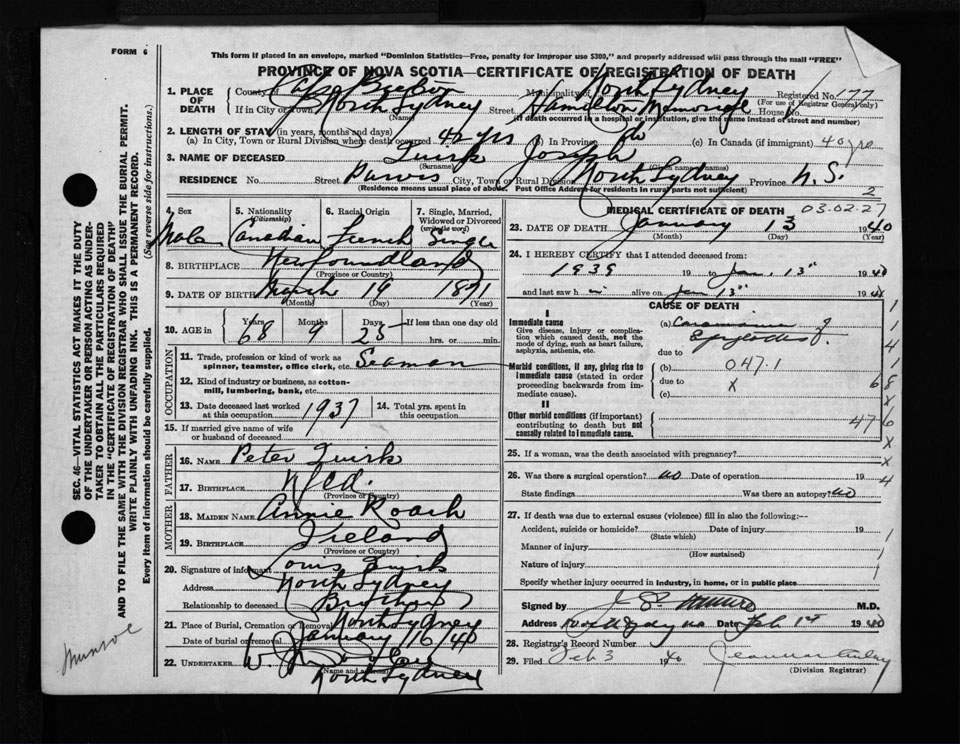 FORM 6
This form if placed in an envelope, marked "Dominion Statistics—Free, penalty for improper use $300," and properly addressed will pass through the mail "FREE"
PROVINCE OF NOVA SCOTIA—CERTIFICATE OF REGISTRATION OF DEATH
1. PLACE OF DEATH County of Cape Breton Municipality of North Sydney Registered No. 177
(For use of Registrar General only)
If in City or Town North Sydney Street Hamilton Memorial House No.
(Name) (If death occurred in a hospital or institution, give the name instead of street and number)
2. LENGTH OF STAY (in years, months and days)
(a) In City, Town or Rural Division where death occurred 40 yrs (b) In Province do (c) In Canada (if immigrant) 40 yrs
3. NAME OF DECEASED Quirk Joseph
(Surname) (Given name or names)
RESIDENCE No. Street Purves City, Town or Rural Division North Sydney Province N.S.
(Residence means usual place of abode. Post Office Address for residents in rural parts not sufficient) 2
4. Sex 5. Nationality (Citizenship) 6. Racial Origin 7. Single, Married, Widowed or Divorced (write the word)
Male Canadian French Single
8. BIRTHPLACE Newfoundland
(Province or Country)
9. DATE OF BIRTH March 19 1871
(Month) (Day) (Year)
10. AGE in Years Months Days If less than one day old
68 9 25 hrs. or min.
OCCUPATION
11. Trade, profession or kind of work as spinner, teamster, office clerk, etc. Seaman
12. Kind of industry or business, as cotton-mill, lumbering, bank, etc.
13. Date deceased last worked at this occupation 1937 14. Total yrs. spent in this occupation
15. If married give name of wife or husband of deceased
FATHER
16. NAME Peter Quirk
17. BIRTHPLACE Nfld.
(Province or Country)
MOTHER
18. MAIDEN NAME Annie Roach
19. BIRTHPLACE Ireland
(Province or Country)
20. Signature of informant Louis Quirk
Address North Sydney
Relationship to deceased Brother
21. Place of Burial, Cremation or Removal North Sydney
Date of burial or removal January 16 1940
22. UNDERTAKER W.
(Name and address)
North Sydney
MEDICAL CERTIFICATE OF DEATH
03.02.27
23. DATE OF DEATH January 13 1940
(Month) (Day) (Year)
24. I HEREBY CERTIFY that I attended deceased from:
1939 19 to Jan. 13th 1940
and last saw him alive on Jan 13th 19 40
CAUSE OF DEATH
I
Immediate cause
Give disease, injury or complication which caused death, not the mode of dying, such as heart failure, asphyxia, asthenia, etc.
(a) Carcinoma of
due to
Morbid conditions, if any, giving rise to immediate cause (stated in order proceeding backwards from immediate cause).
(b) 047.1
due to X
(c)
II
Other morbid conditions (if important) contributing to death but not causally related to immediate cause.
47
25. If a woman, was the death associated with pregnancy?
26. Was there a surgical operation? no Date of operation 19
State findings Was there an autopsy? no
27. If death was due to external causes (violence) fill in also the following:—
Accident, suicide or homicide? Date of injury 19
(State which)
Manner of injury
(How sustained)
Nature of injury
Specify whether injury occurred in industry, in home, or in public place
Signed by M.D.
Address North Sydney NS Date Feb 1st 1940
28. Registrar's Record Number
29. Filed Feb 3 1940
(Division Registrar)
SEC. 46—VITAL STATISTICS ACT MAKES IT THE DUTY OF THE UNDERTAKER OR PERSON ACTING AS UNDERTAKER TO OBTAIN ALL THE PARTICULARS REQUIRED IN THE "CERTIFICATE OF REGISTRATION OF DEATH"
AND TO FILE THE SAME WITH THE DIVISION REGISTRAR WHO SHALL ISSUE THE BURIAL PERMIT.
WRITE PLAINLY WITH UNFADING INK. THIS IS A PERMANENT RECORD.
Every item of information should be carefully supplied. (See reverse side for instructions.)
Munroe